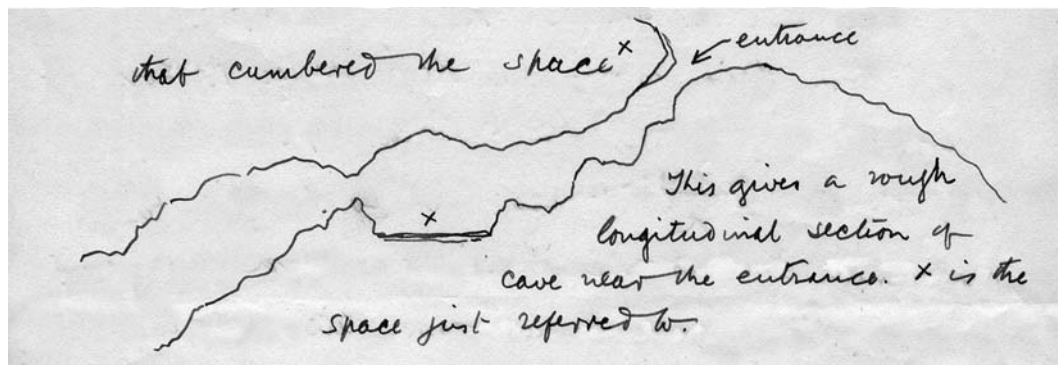 that cumbered the space x
entrance
x
This gives a rough
longitudinal section of
cave near the entrance. x is the
space just referred to.